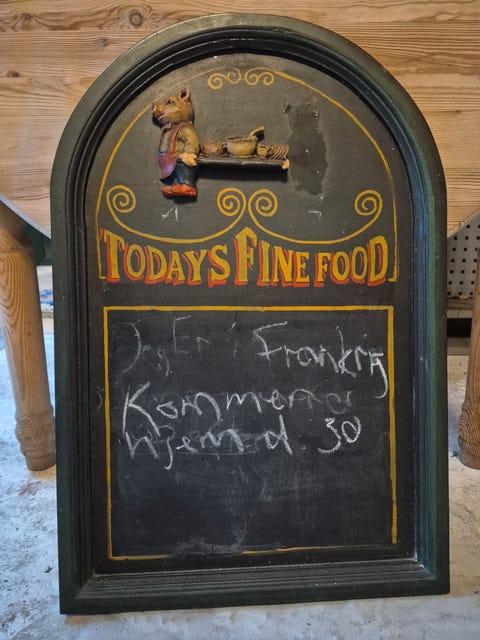 TODAYS FINE FOOD
Jeg Er i Frankrig
Kommer
hjem d. 30